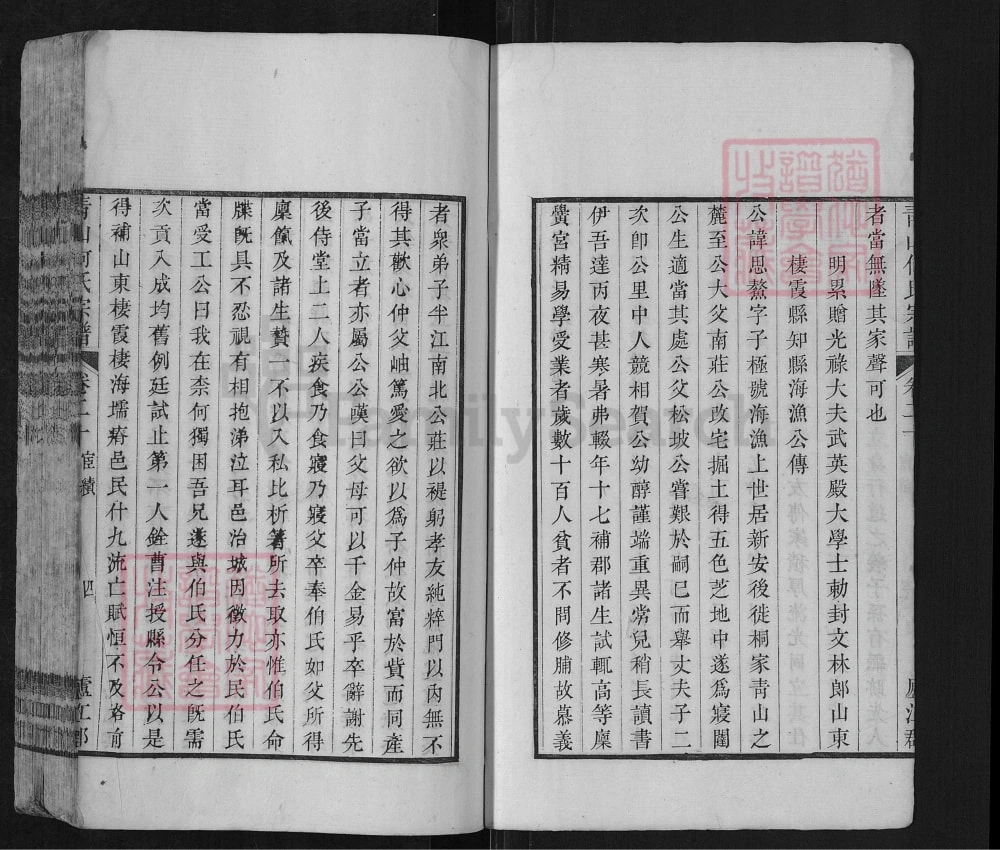 者當無墜其家聲可也
明累贈光祿大夫武英殿大學士勅封文林郎山東
棲霞縣知縣海漁公傳
公諱思鰲字子極號海漁上世居新安後徙桐家青山之
麓至公大父南莊公改宅掘土得五色芝地中遂爲寢閣
公生適當其處公父松坡公甞艱於嗣已而舉丈夫子二
次卽公里中人競相賀公幼醇謹端重異常兒稍長讀書
伊吾達丙夜甚寒暑弗輟年十七補郡諸生試輒高等廩
黌宮精易學受業者歲數十百人貧者不問修脯故慕義
者衆弟子半江南北公莊以褆躬孝友純粹門以內無不
得其歡心仲父岫篤愛之欲以爲子仲故富於貲而同產
子當立者亦屬公公嘆曰父母可以千金易乎卒辭謝先
後侍堂上二人疾食乃食寢乃寢父卒奉伯氏如父所得
廩餼及諸生贄一不以入私比析箸所去取亦惟伯氏命
牒旣具不忍視有相抱涕泣耳邑治城因徵力於民伯氏
當受工公曰我在柰何獨困吾兄遂與伯氏分任之旣需
次貢入成均舊例廷試止第一人銓曹注授縣令公以是
得補山東棲霞棲海壖瘠邑民什九流亡賦恒不及格前
青山何氏宗譜
卷二十 宦績
四
廬江郡
FamilySearch